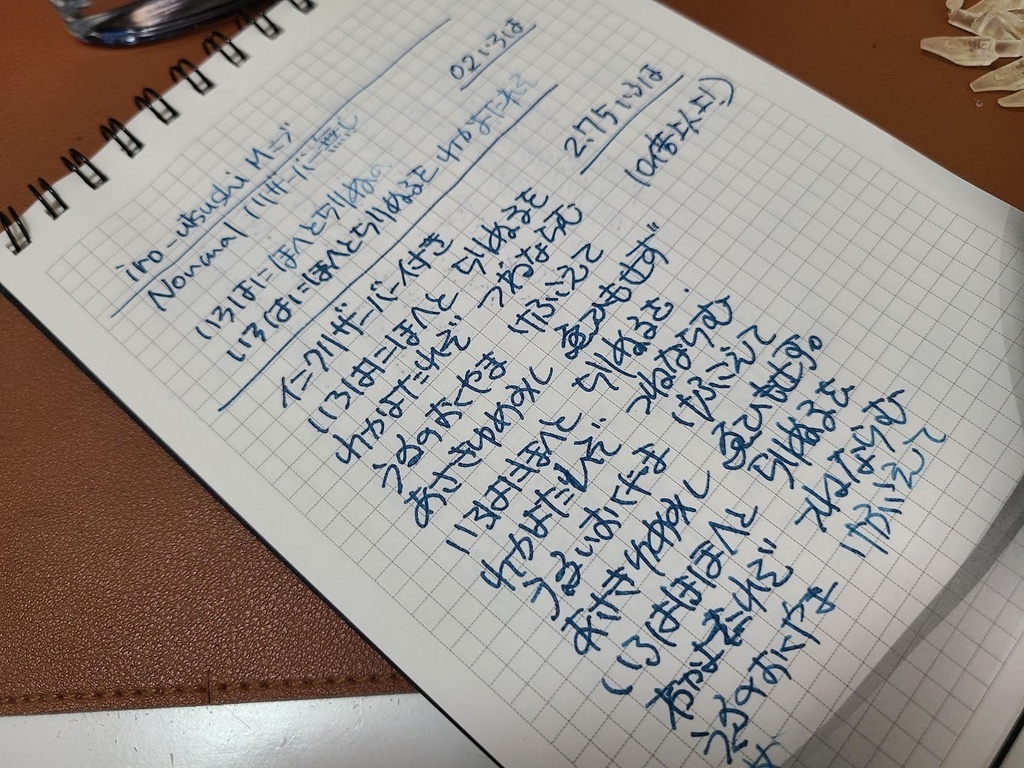 iro-utsushi Nニブ
Normal リザーバー無し 0.2いろは
いろはにほへとちりぬ
いろはにほへとちりぬるを わかよたれそ
インクリザーバー付き 2.75いろは
(10倍以上!)
いろはにほへと ちりぬるを
わかよたれぞ つねならむ
うゐのおくやま けふこえて
あさきゆめみし ゑひもせず
いろはにほへと ちりぬるを
わかよたれぞ つねならむ
おくやま けふこえて
あさきゆめみし ゑひもせす。
いろはにほへと ちりぬるを
わかよたれぞ つねならむ
うゐのおくやま けふこえて